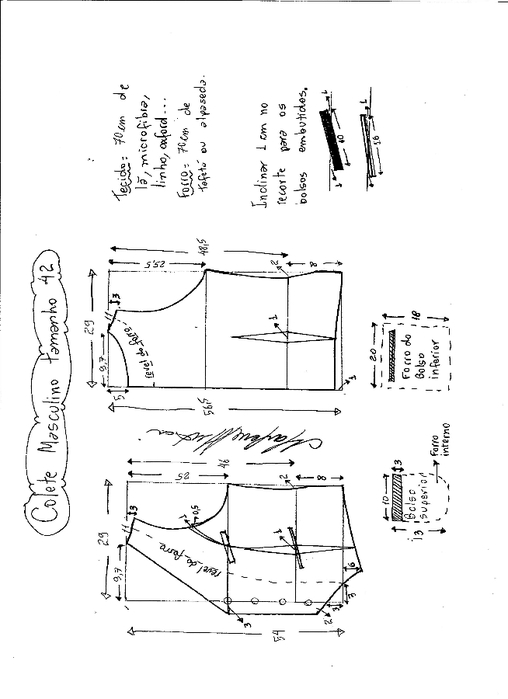 Colete Masculino tamanho 42
29
9,7
11
3
25
46
8
2
1
0,5
revel do forro
54
3
2
3
3
6
29
9,7
5
11
3
25,5
48,5
8
2
1
revel do forro
56,5
1
Tecido: 70cm de
lã, microfibra,
linho, oxford...
Forro: 70cm de
tafetá ou alpaseda.
Inclinar 1cm no
recorte para os
bolsos embutidos.
1
10
1
1
16
1
10
3
Bolso
superior
13
Forro
interno
20
18
Forro do
Bolso
inferior